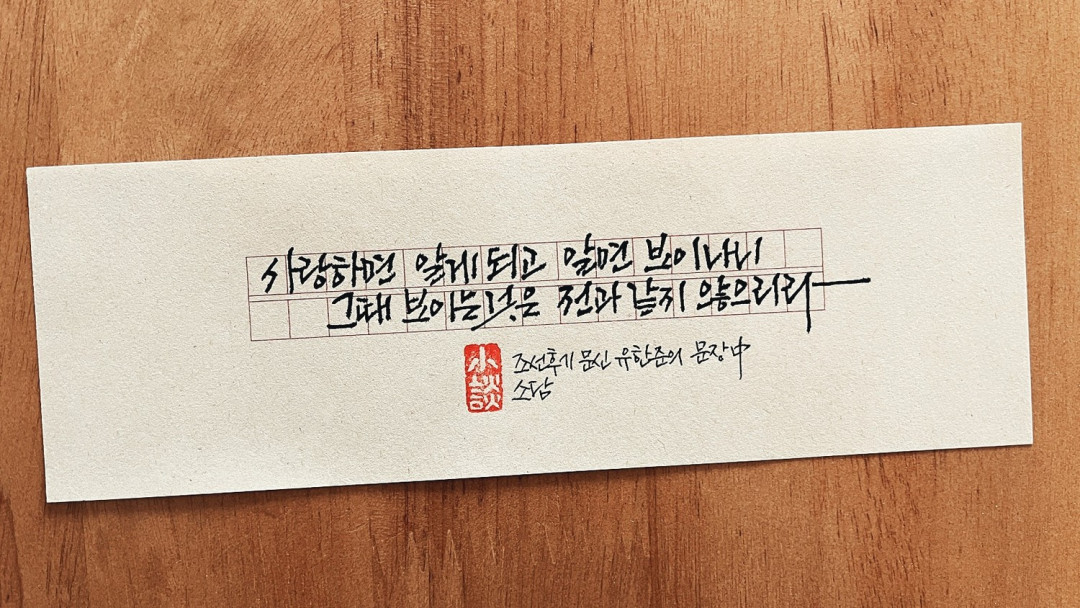 사랑하면 알게 되고 알면 보이나니
그때 보이는 것은 전과 같지 않으리라
小談
조선후기 문신 유한준의 문장中
소담